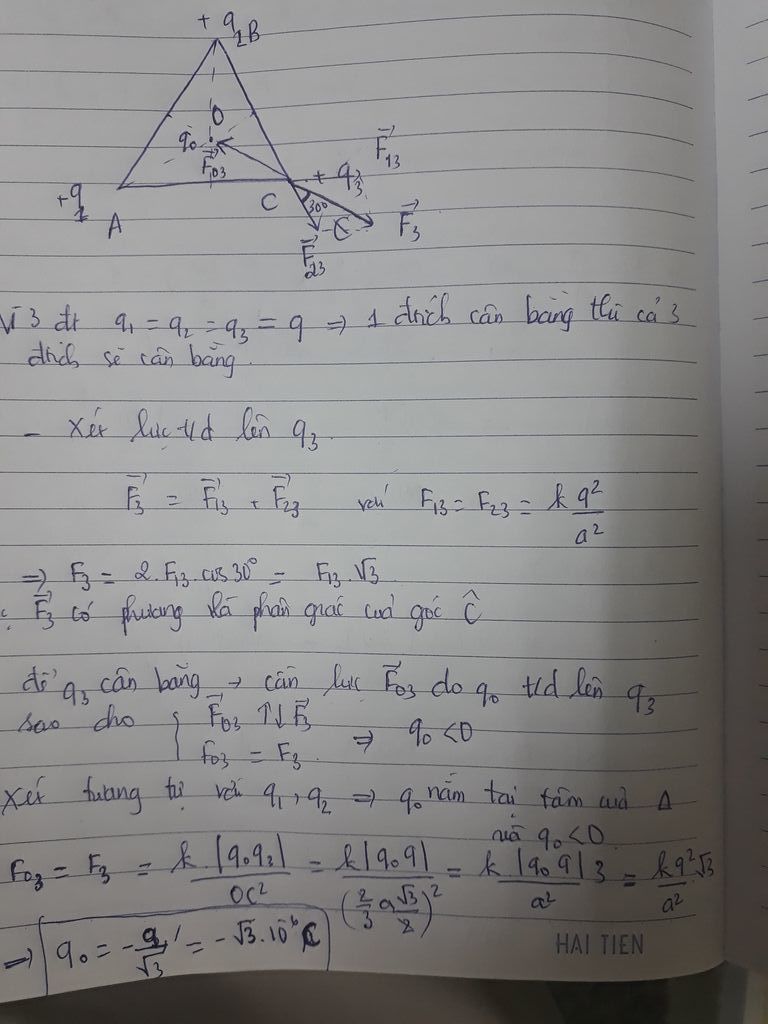 + q₂ B
O
q₀
F₀₃
F₁₃
+q₁
A
C
+ q₃
30°
F₃
F₂₃
Vì 3 đt q₁ = q₂ = q₃ = q ⇒ 1 đtích cân bằng thì cả 3
đtích sẽ cân bằng.
- Xét lực t/d lên q₃.
F₃ = F₁₃ + F₂₃ với F₁₃ = F₂₃ = k q²/a²
⇒ F₃ = 2.F₁₃.cos30° = F₁₃.√3
F₃ có phương là phân giác của góc Ĉ
để q₃ cân bằng → cần lực F₀₃ do q₀ t/d lên q₃
sao cho { F₀₃ ↑↓ F₃ ⇒ q₀ < 0
F₀₃ = F₃.
Xét tương tự với q₁, q₂ ⇒ q₀ nằm tại tâm của Δ
và q₀ < 0.
F₀₃ = F₃ = k |q₀q₃| / OC² = k|q₀q| / (2/3 a √3/2)² = k |q₀q| 3 / a² = kq²√3 / a²
→ q₀ = -q/√3 = -√3.10⁻⁶ C
HAI TIEN